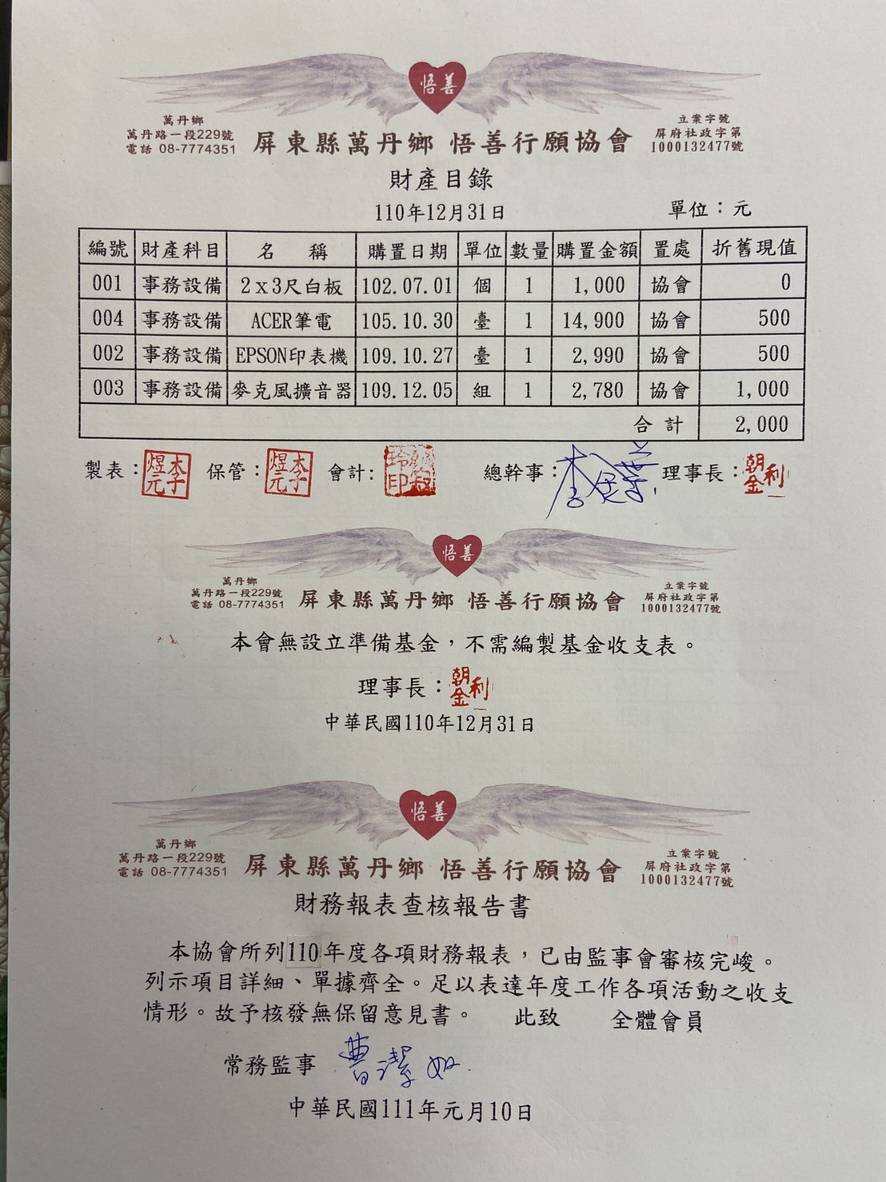 悟善
萬丹鄉
萬丹路一段229號
電話 08-7774351
屏東縣萬丹鄉 悟善行願協會
立案字號
屏府社政字第
1000132477號
財產目錄
110年12月31日
單位：元
編號 財產科目 名 稱 購置日期 單位 數量 購置金額 置處 折舊現值
001 事務設備 2x3尺白板 102.07.01 個 1 1,000 協會 0
004 事務設備 ACER筆電 105.10.30 臺 1 14,900 協會 500
002 事務設備 EPSON印表機 109.10.27 臺 1 2,990 協會 500
003 事務設備 麥克風擴音器 109.12.05 組 1 2,780 協會 1,000
合計 2,000
製表：李子煜元 保管：李子煜元 會計： 總幹事： 理事長：朝金利
悟善
萬丹鄉
萬丹路一段229號
電話 08-7774351
屏東縣萬丹鄉 悟善行願協會
立案字號
屏府社政字第
1000132477號
本會無設立準備基金，不需編製基金收支表。
理事長：朝金利
中華民國110年12月31日
悟善
萬丹鄉
萬丹路一段229號
電話 08-7774351
屏東縣萬丹鄉 悟善行願協會
立案字號
屏府社政字第
1000132477號
財務報表查核報告書
本協會所列110年度各項財務報表，已由監事會審核完峻。
列示項目詳細、單據齊全。足以表達年度工作各項活動之收支
情形。故予核發無保留意見書。 此致 全體會員
常務監事 曹潔如
中華民國111年元月10日